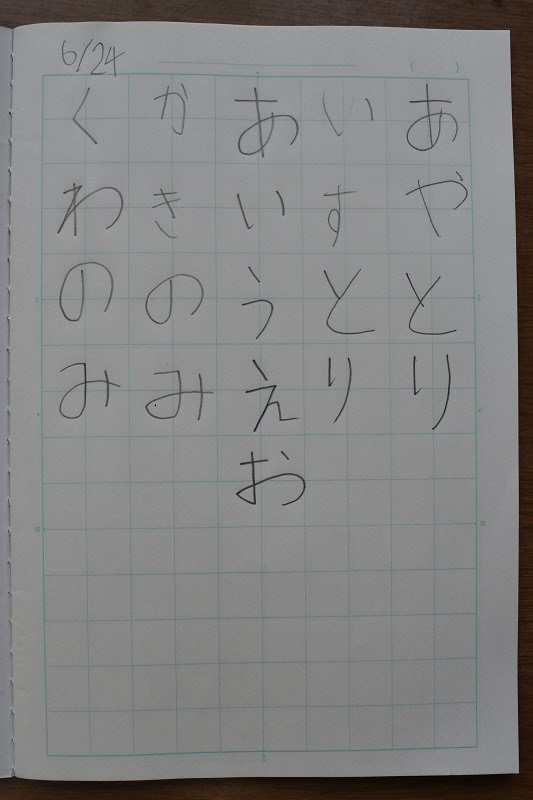 6/24
あやとり
いすとり
あいうえお
かきのみ
くわのみ